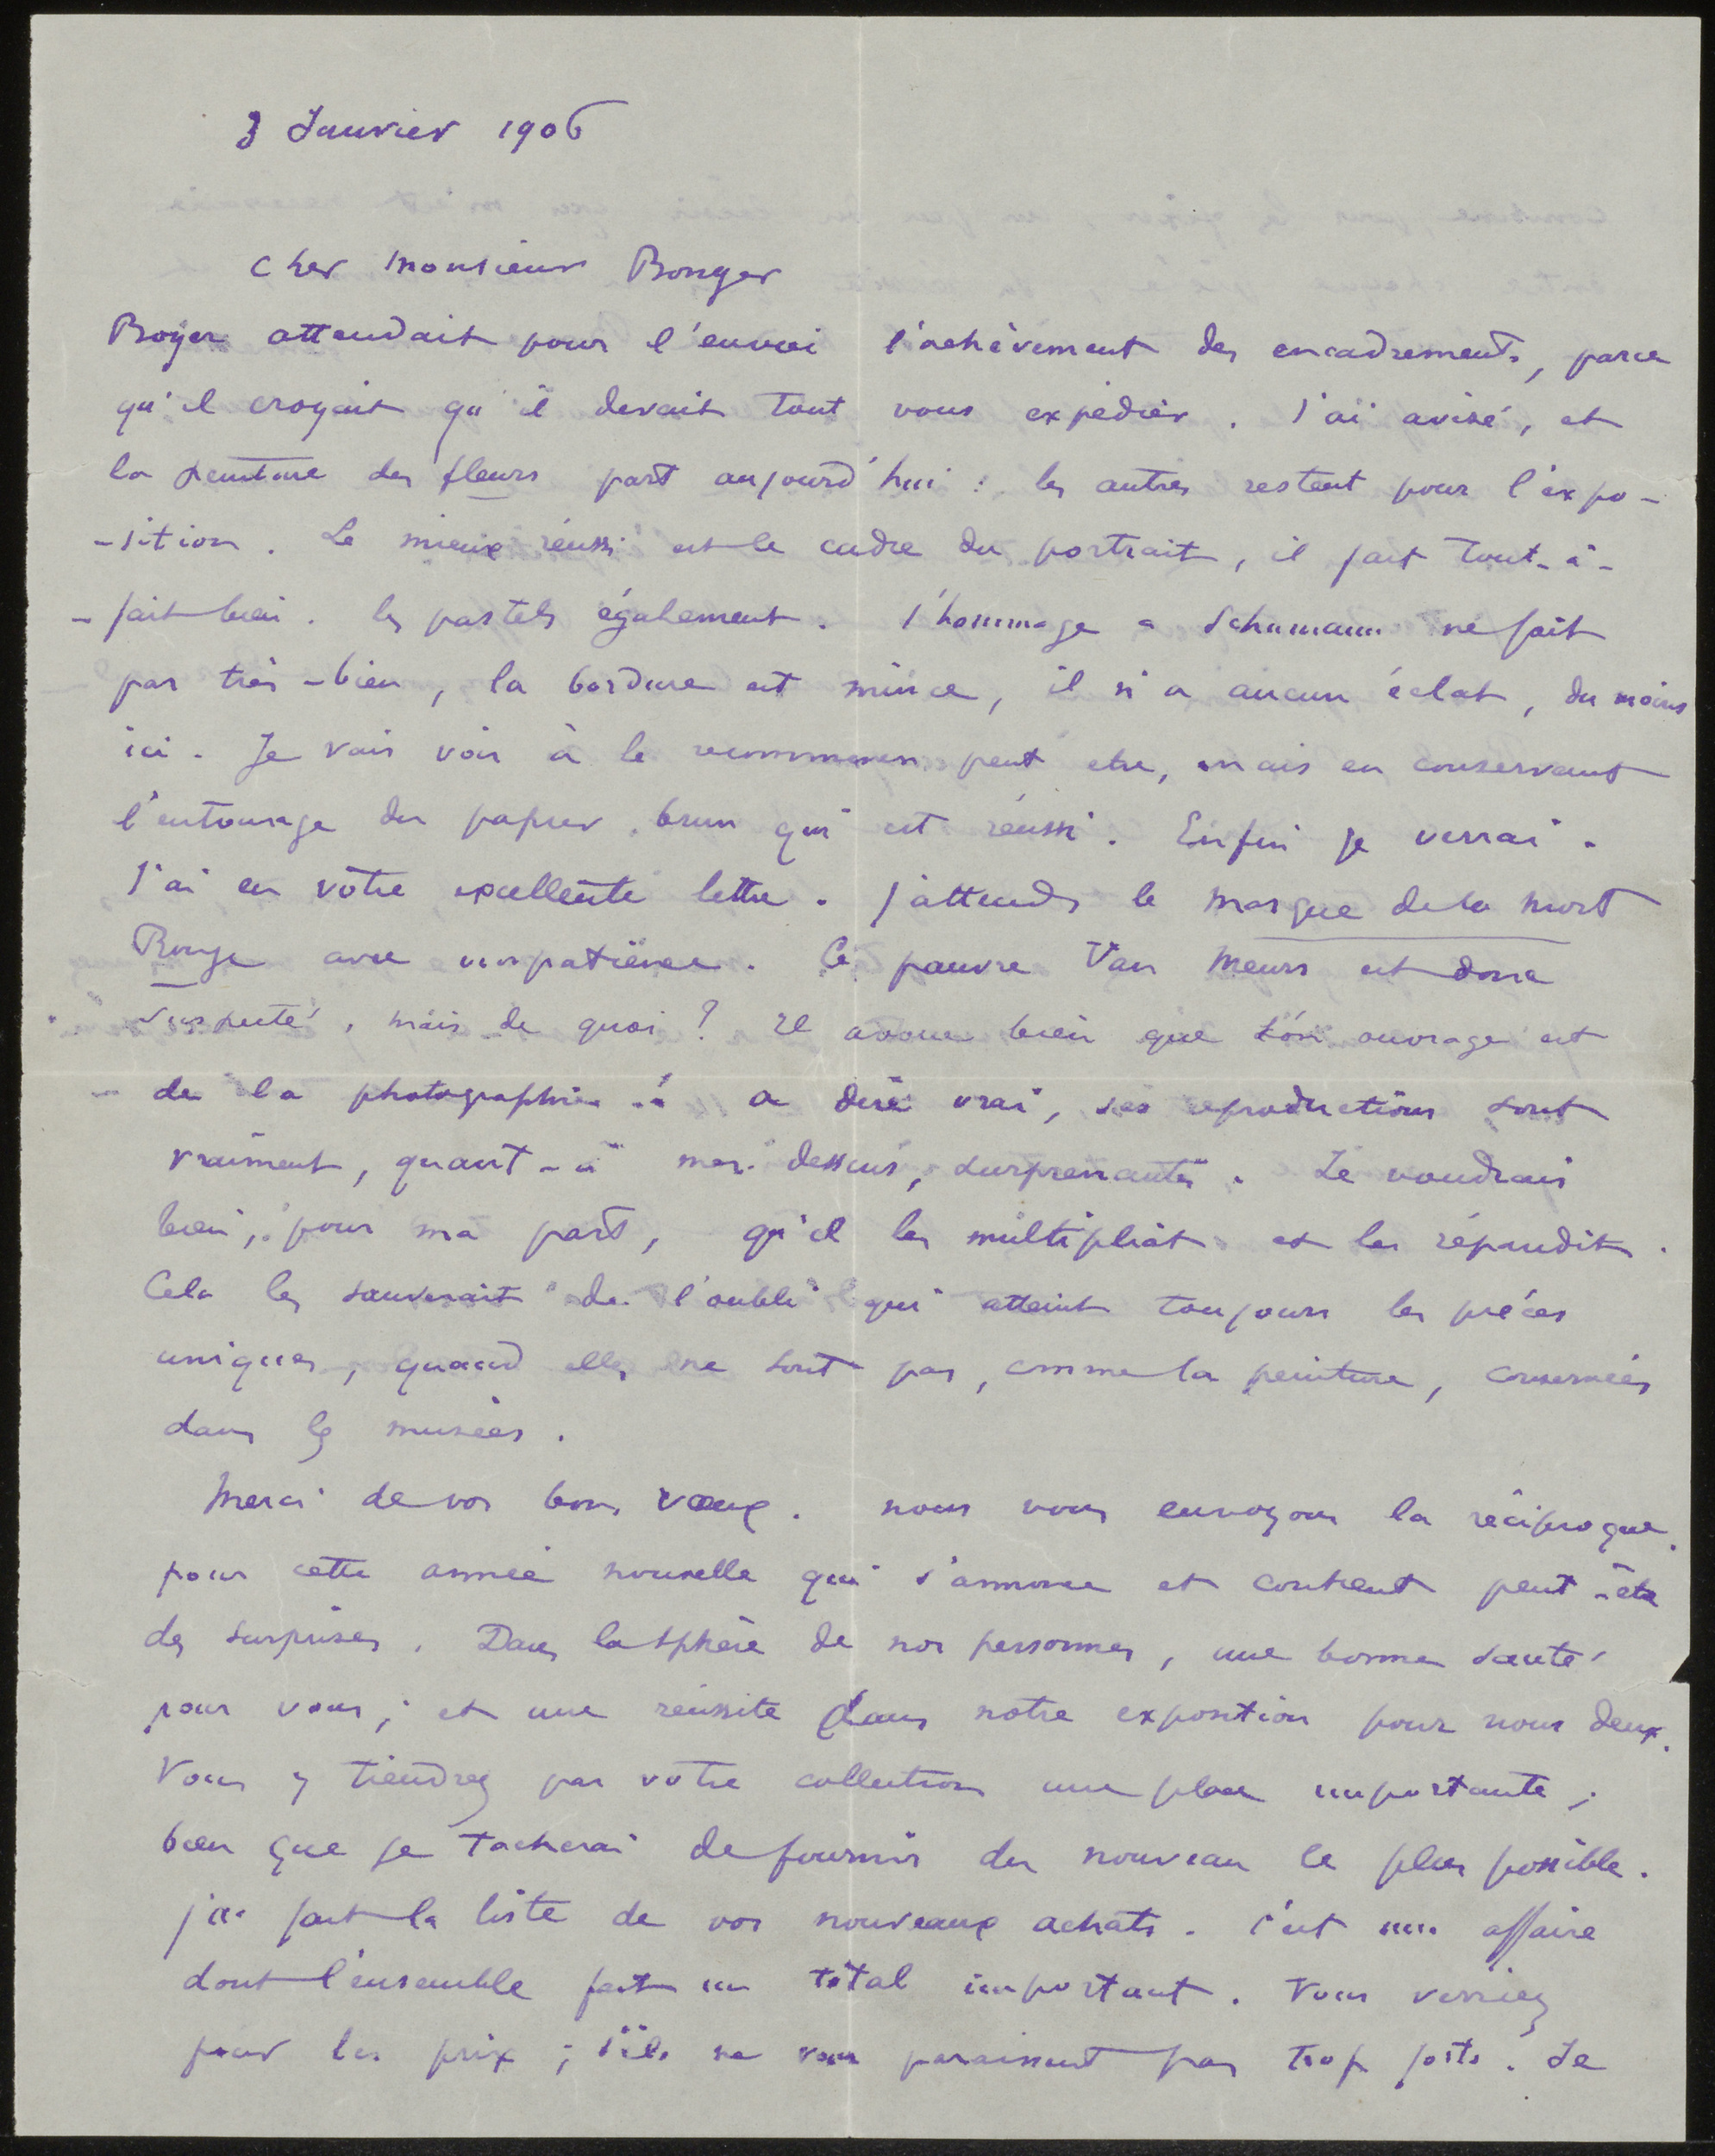 3 Janvier 1906
Cher Monsieur Bonger
Boyer attendait pour l'envoi l'achèvement des encadrements, parce
qu'il croyait qu'il devait tout vous expédier. J'ai avisé, et
la peinture des fleurs part aujourd'hui : les autres restent pour l'expo-
-sition. Le mieux réussi est le cadre du portrait, il fait tout-à-
-fait bien. les pastels également. l'hommage a Schumann ne fait
pas très-bien, la bordure est mince, il n'a aucun éclat, du moins
ici. Je vais voir à le recommencer peut etre, mais en conservant
l'entourage du papier brun qui est réussi. Enfin je verrai.
J'ai eu votre excellente lettre. j'attends le masque de la mort
Rouge avec impatience. Ce pauvre Van Meurs est donc
suspecté, mais de quoi ? Il avoue bien que son ouvrage est
de la photographie. a dire vrai, ses reproductions sont
vraiment, quant-à mes dessins, surprenantes. Je voudrais
bien, pour ma part, qu'il les multipliât et les répandit.
Cela les sauverait de l'oubli qui atteint toujours les pièces
uniques, quand elles ne sont pas, comme la peinture, conservées
dans les musées.
Merci de vos bons vœux. nous vous envoyons la réciproque
pour cette année nouvelle qui s'annonce et contient peut-être
des surprises. Dans la sphère de nos personnes, une bonne santé
pour vous ; et une réussite dans notre exposition pour nous deux.
Vous y tiendrez par votre collection une place importante ;
bien que je tacherai de fournir du nouveau le plus possible.
j'ai fait la liste de vos nouveaux achats. C'est une affaire
dont l'ensemble fait un total important. Vous verriez
pour les prix ; s'ils ne vous paraissent pas trop forts. Je